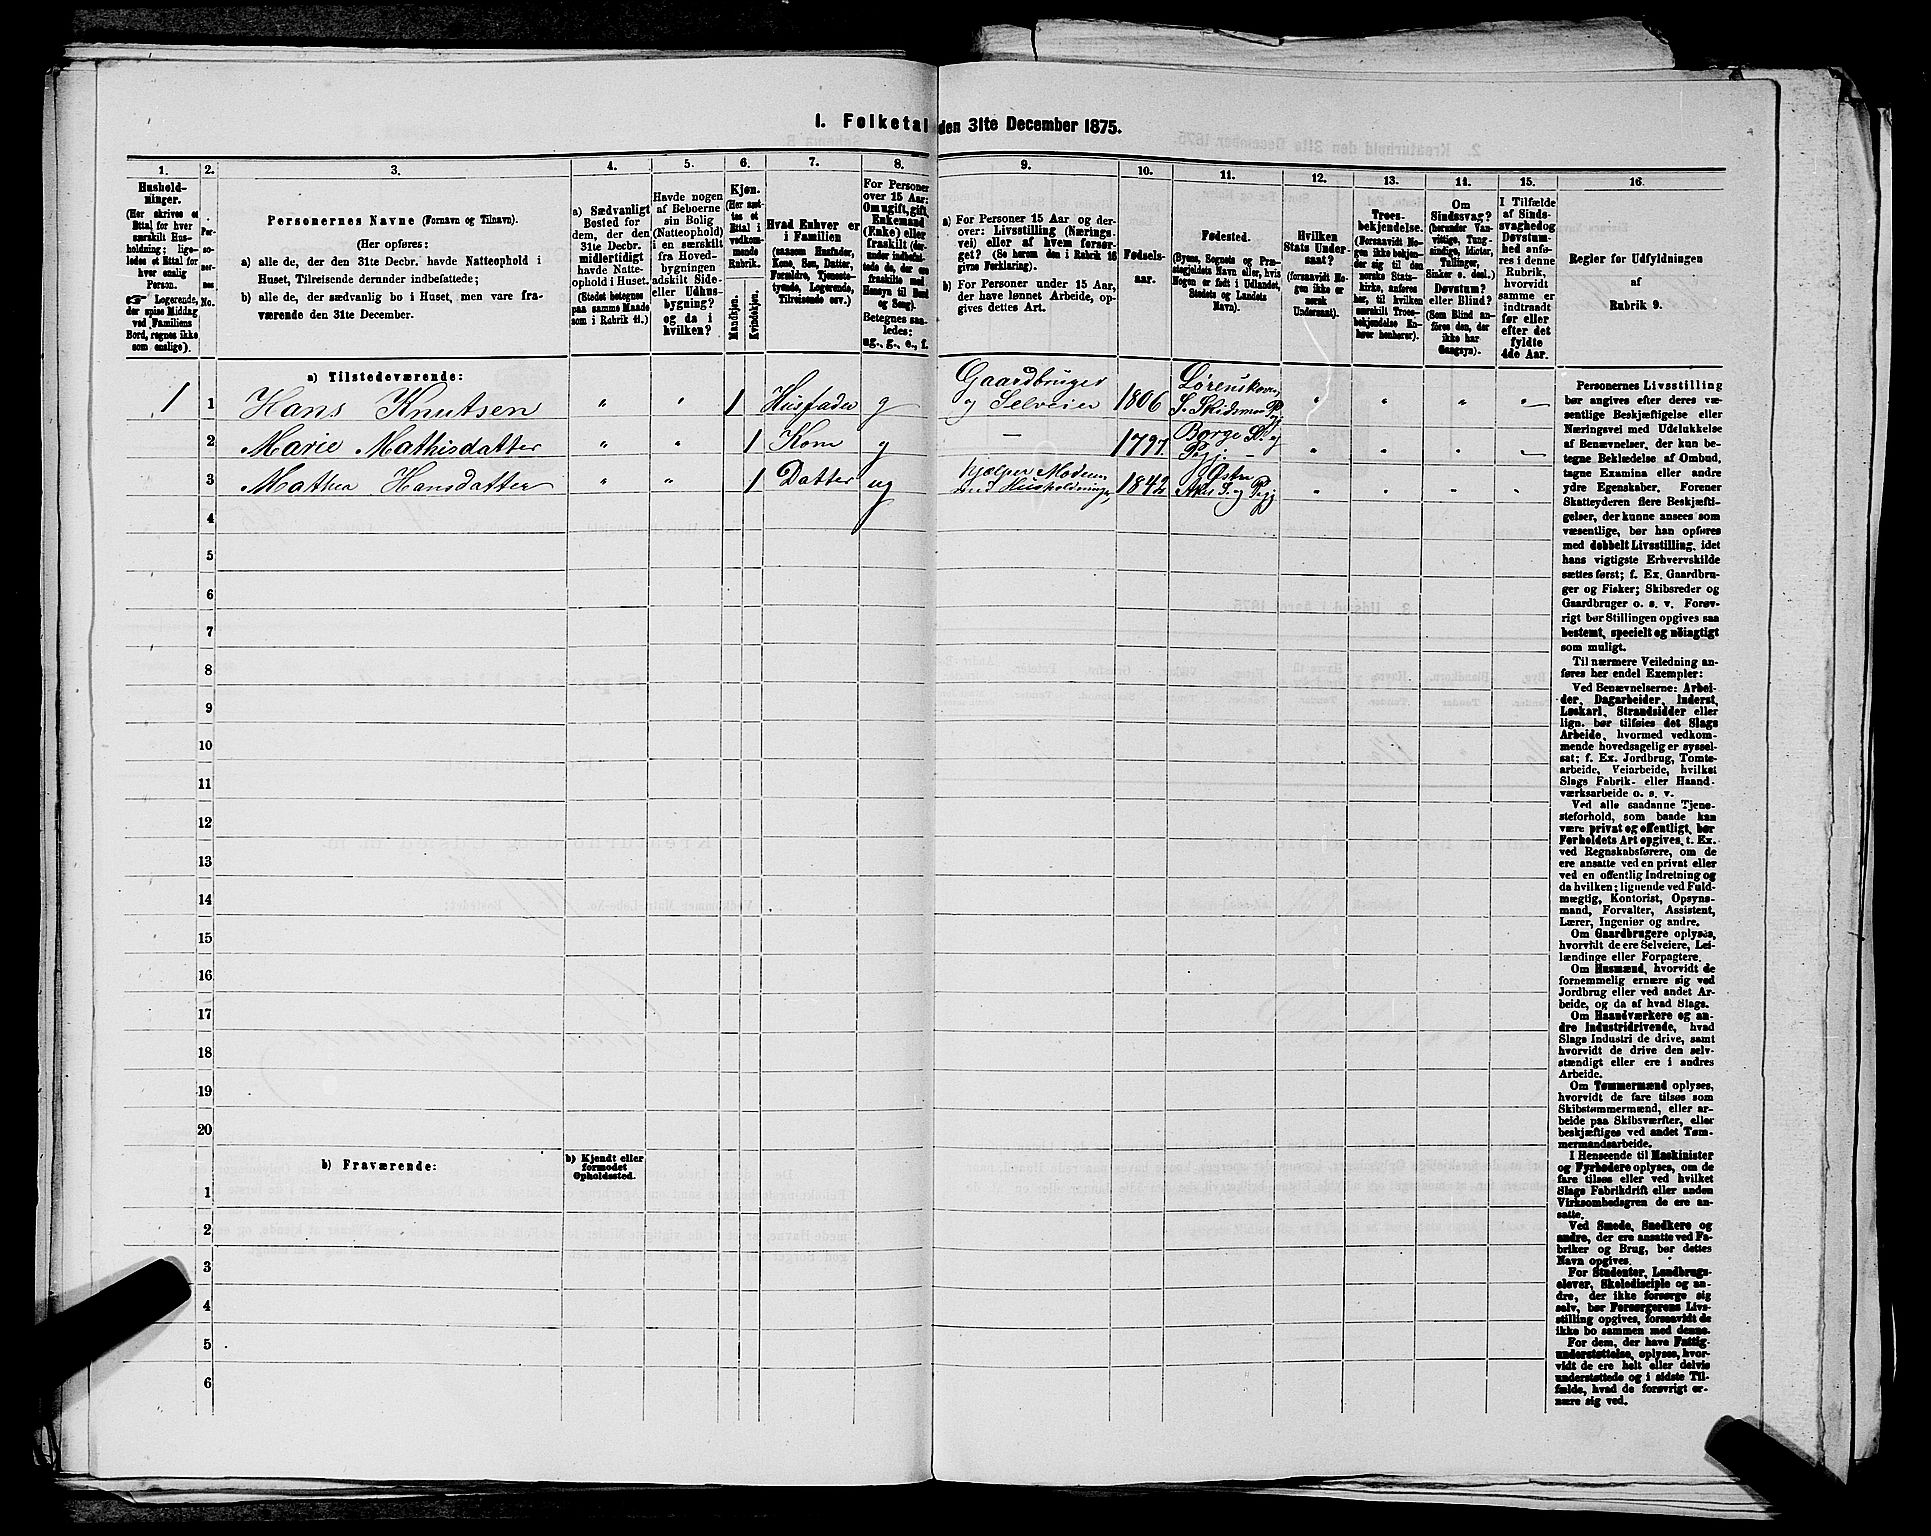 I. Folketal den 31te December 1875.
1. 2. 3. 4. 5. 6. 7. 8. 9. 10. 11. 12. 13. 14. 15. 16.
Hushold-
ninger.
(Her skrives et
Ettal for hver
særskilt Hus-
holdning; lige-
ledes et Ettal for
hver enslig
Person.
☞ Logerende,
der spise Middag
ved Familiens
Bord, regnes ikke
som enslige).
Per-
so-
ner-
nes
No.
Personernes Navne (Fornavn og Tilnavn).
(Her opføres:
a) alle de, der den 31te Decbr. havde Natteophold i
Huset, Tilreisende derunder indbefattede;
b) alle de, der sædvanlig bo i Huset, men vare fra-
værende den 31te December.
a) Sædvanligt
Bosted for
dem, der den
31te Decbr.
midlertidigt
havde Natte-
ophold i Huset.
(Stedet betegnes
paa samme Maade
som i Rubrik 11.)
Havde nogen
af Beboerne
sin Bolig
(Natteophold)
i en særskilt
fra Hoved-
bygningen
adskilt Side-
eller Udhus-
bygning?
og da i
hvilken?
Kjøn.
(Her sæt-
tes et
Ettal i
vedkom-
mende
Rubrik.
Mandkjøn.
Kvindekjøn.
Hvad Enhver er
i Familien
(saasom Husfader,
Kone, Søn, Datter,
Forældre, Tjeneste-
tyende, Logerende,
Tilreisende osv.)
For Personer
over 15 Aar:
Om ugift, gift,
Enkemand
(Enke) eller
fraskilt (der-
under indbefat-
tede de, der ere
fraskilte med
Hensyn til Bord
og Seng).
Betegnes saa-
ledes:
ug., g., e., f.
a) For Personer 15 Aar og der-
over: Livsstilling (Nærings-
vei) eller af hvem forsør-
get? (Se herom den i Rubrik 16
givne Forklaring).
b) For Personer under 15 Aar,
der have lønnet Arbeide, op-
gives dettes Art.
Fødsels-
aar.
Fødested.
(Byens, Sognets og Præ-
stegjeldets Navn eller, hvis
Nogen er født i Udlandet,
Stedets og Landets
Navn).
Hvilken
Stats Under-
saat?
(forsaavidt No-
gen ikke er
norsk
Undersaat).
Troes-
bekjendelse.
(Forsaavidt No-
gen ikke bekjen-
der sig til den
norske Stats-
kirke, anføres
her, til hvilken
særskilt Troes-
bekjendelse En-
hver henhører).
Om
Sindssvag?
(herunder Van-
vittige, Tung-
sindige, Idioter,
Tullinger,
Sinker o. desl.)
Døvstum?
eller Blind?
(Som Blind an-
føres den, der
ikke har
Gangsyn).
I Tilfælde
af Sinds-
svaghed og
Døvstum-
hed anfø-
res i denne
Rubrik,
hvorvidt
samme er
indtraadt
før eller
efter det
fyldte
4de Aar.
Regler for Udfyldningen
af
Rubrik 9.
a) Tilstedeværende:
1 1 Hans Knutsen " " 1 Husfader g Gaardbruger og Selveier 1806 Lørenskoven S. Skidsmo Pgj " " " "
2 Marie Mathisdatter " " 1 Kone g — 1797 Borge S. og Pgj. " " " "
3 Mathea Hansdatter " " 1 Datter ug hjælper Moderen med Husholdningen 1842 Østre Aker S. og Pgj " " " "
4
5
6
7
8
9
10
11
12
13
14
15
16
17
18
19
20
b) Fraværende:
b) Kjendt eller
formodet
Opholdssted.
1
2
3
4
5
6
Personernes Livsstilling
bør angives efter deres væ-
sentlige Beskjæftigelse eller
Næringsvei med Udelukkelse
af Benævnelser, der kun be-
tegne Beklædelse af Ombud,
tagne Examina eller andre
ydre Egenskaber. Forener
Skatteyderen flere Beskjæfti-
gelser, der kunne ansees som
væsentlige, bør han opføres
med dobbelt Livsstilling, idet
hans vigtigste Erhvervskilde
sættes først; f. Ex. Gaardbru-
ger og Fisker; Skibsreder og
Gaardbruger o. s. v. Forøv-
rigt bør Stillingen opgives saa
bestemt, specielt og nöiagtigt
som muligt.
Til nærmere Veiledning an-
føres her endel Exempler:
Ved Benævnelserne: Arbei-
der, Dagarbeider, Inderst,
Løskarl, Strandsidder eller
lign. bør tilføies det Slags
Arbeide, hvormed vedkom-
mende hovedsagelig er syssel-
sat; f. Ex. Jordbrug, Tomte-
arbeide, Veiarbeide, hvilket
Slags Fabrik- eller Haand-
værksarbeide o. s. v.
Ved alle saadanne Tjene-
steforhold, som baade kan
være privat og offentligt, bør
Forholdets Art opgives, t. Ex.
ved Regnskabsførere, om de
ere ansatte ved en privat eller
ved en offentlig Indretning og
da hvilken; lignende ved Fuld-
mægtig, Kontorist, Opsyns-
mand, Forvalter, Assistent,
Lærer, Ingeniør og andre.
Om Gaardbrugere oplyses,
hvorvidt de ere Selveiere, Lei-
lændinge eller Forpagtere.
Om Husmænd, hvorvidt de
fornemmelig ernære sig ved
Jordbrug eller ved andet Ar-
beide, og da af hvad Slags.
Om Haandværkere og an-
dre Industridrivende, hvad
Slags Industri de drive, samt
hvorvidt de drive den selv-
stændigt eller ere i andres
Arbeide.
Om Tømmermænd oplyses,
hvorvidt de fare tilsøs som
Skibstømmermænd, eller ar-
beide paa Skibsværfter, eller
beskjæftiges ved andet Tøm-
mermandsarbeide.
I Henseende til Maskinister
og Fyrbødere oplyses, om de
fare tilsøs eller ved hvilket
Slags Fabrikdrift eller anden
Virksomhedsgren de ere an-
satte.
Ved Smede, Snedkere og
andre, der ere ansatte ved Fa-
briker og Brug, bør dettes
Navn opgives.
For Studenter, Landbrugs-
elever, Skoledisciple og an-
dre, der ikke forsørge sig
selv, bør Forsørgerens Livs-
stilling opgives, forsaavidt de
ikke bo sammen med denne.
For dem, der have Fattig-
understøttelse, oplyses, hvor-
vidt de ere helt eller delvis
understøttede og i sidste Til-
fælde, hvad de forøvrigt er-
nære sig ved.